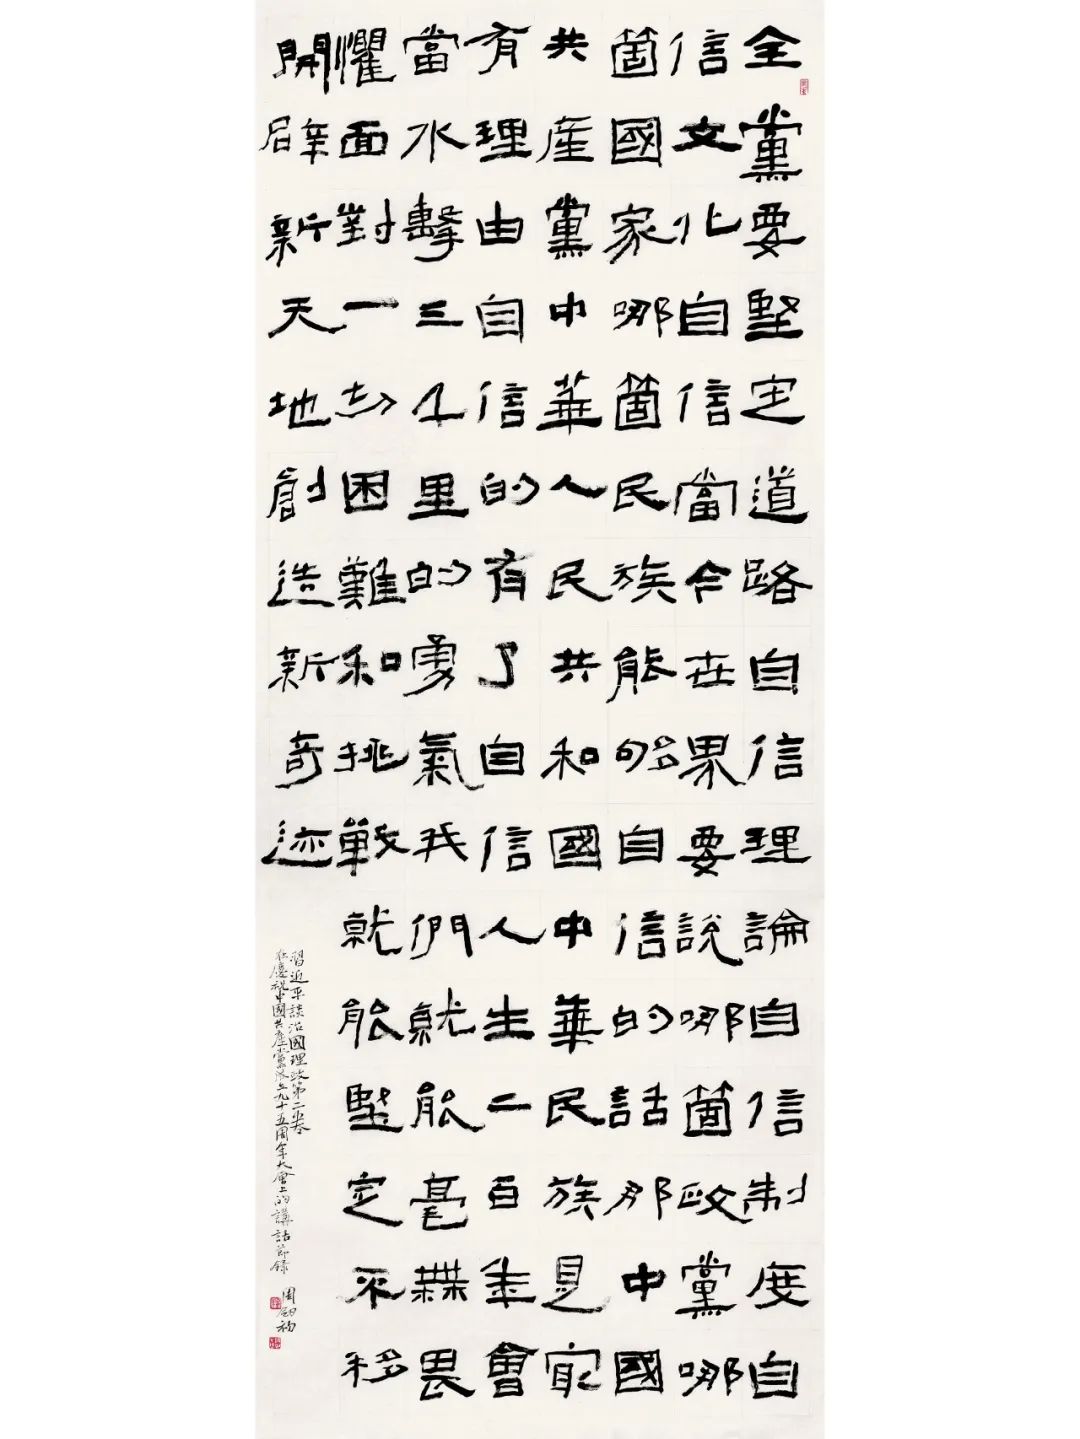 全黨要堅定道路自信理論自信制度自
信文化自信當今世界要說哪箇政黨哪
箇國家哪箇民族能够自信的話那中國
共産黨中華人民共和國中華民族是最
有理由自信的有了自信人生二百年會
當水擊三千里的勇氣我們就能毫無畏
懼面對一切困難和挑戰就能堅定不移
開辟新天地創造新奇迹
習近平談治國理政第二卷
在慶祝中國共産黨成立九十五周年大會上的講話節録
周劍初